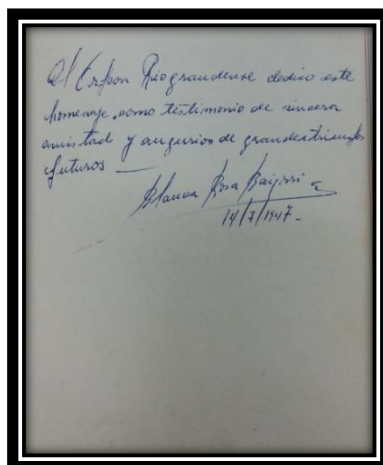 Al Orfeon Riograndense dedico este
homenaje como testimonio de sincera
amistad y augurios de grandes triunfos
futuros —
Blanca Rosa Baigorri
14/7/1947-